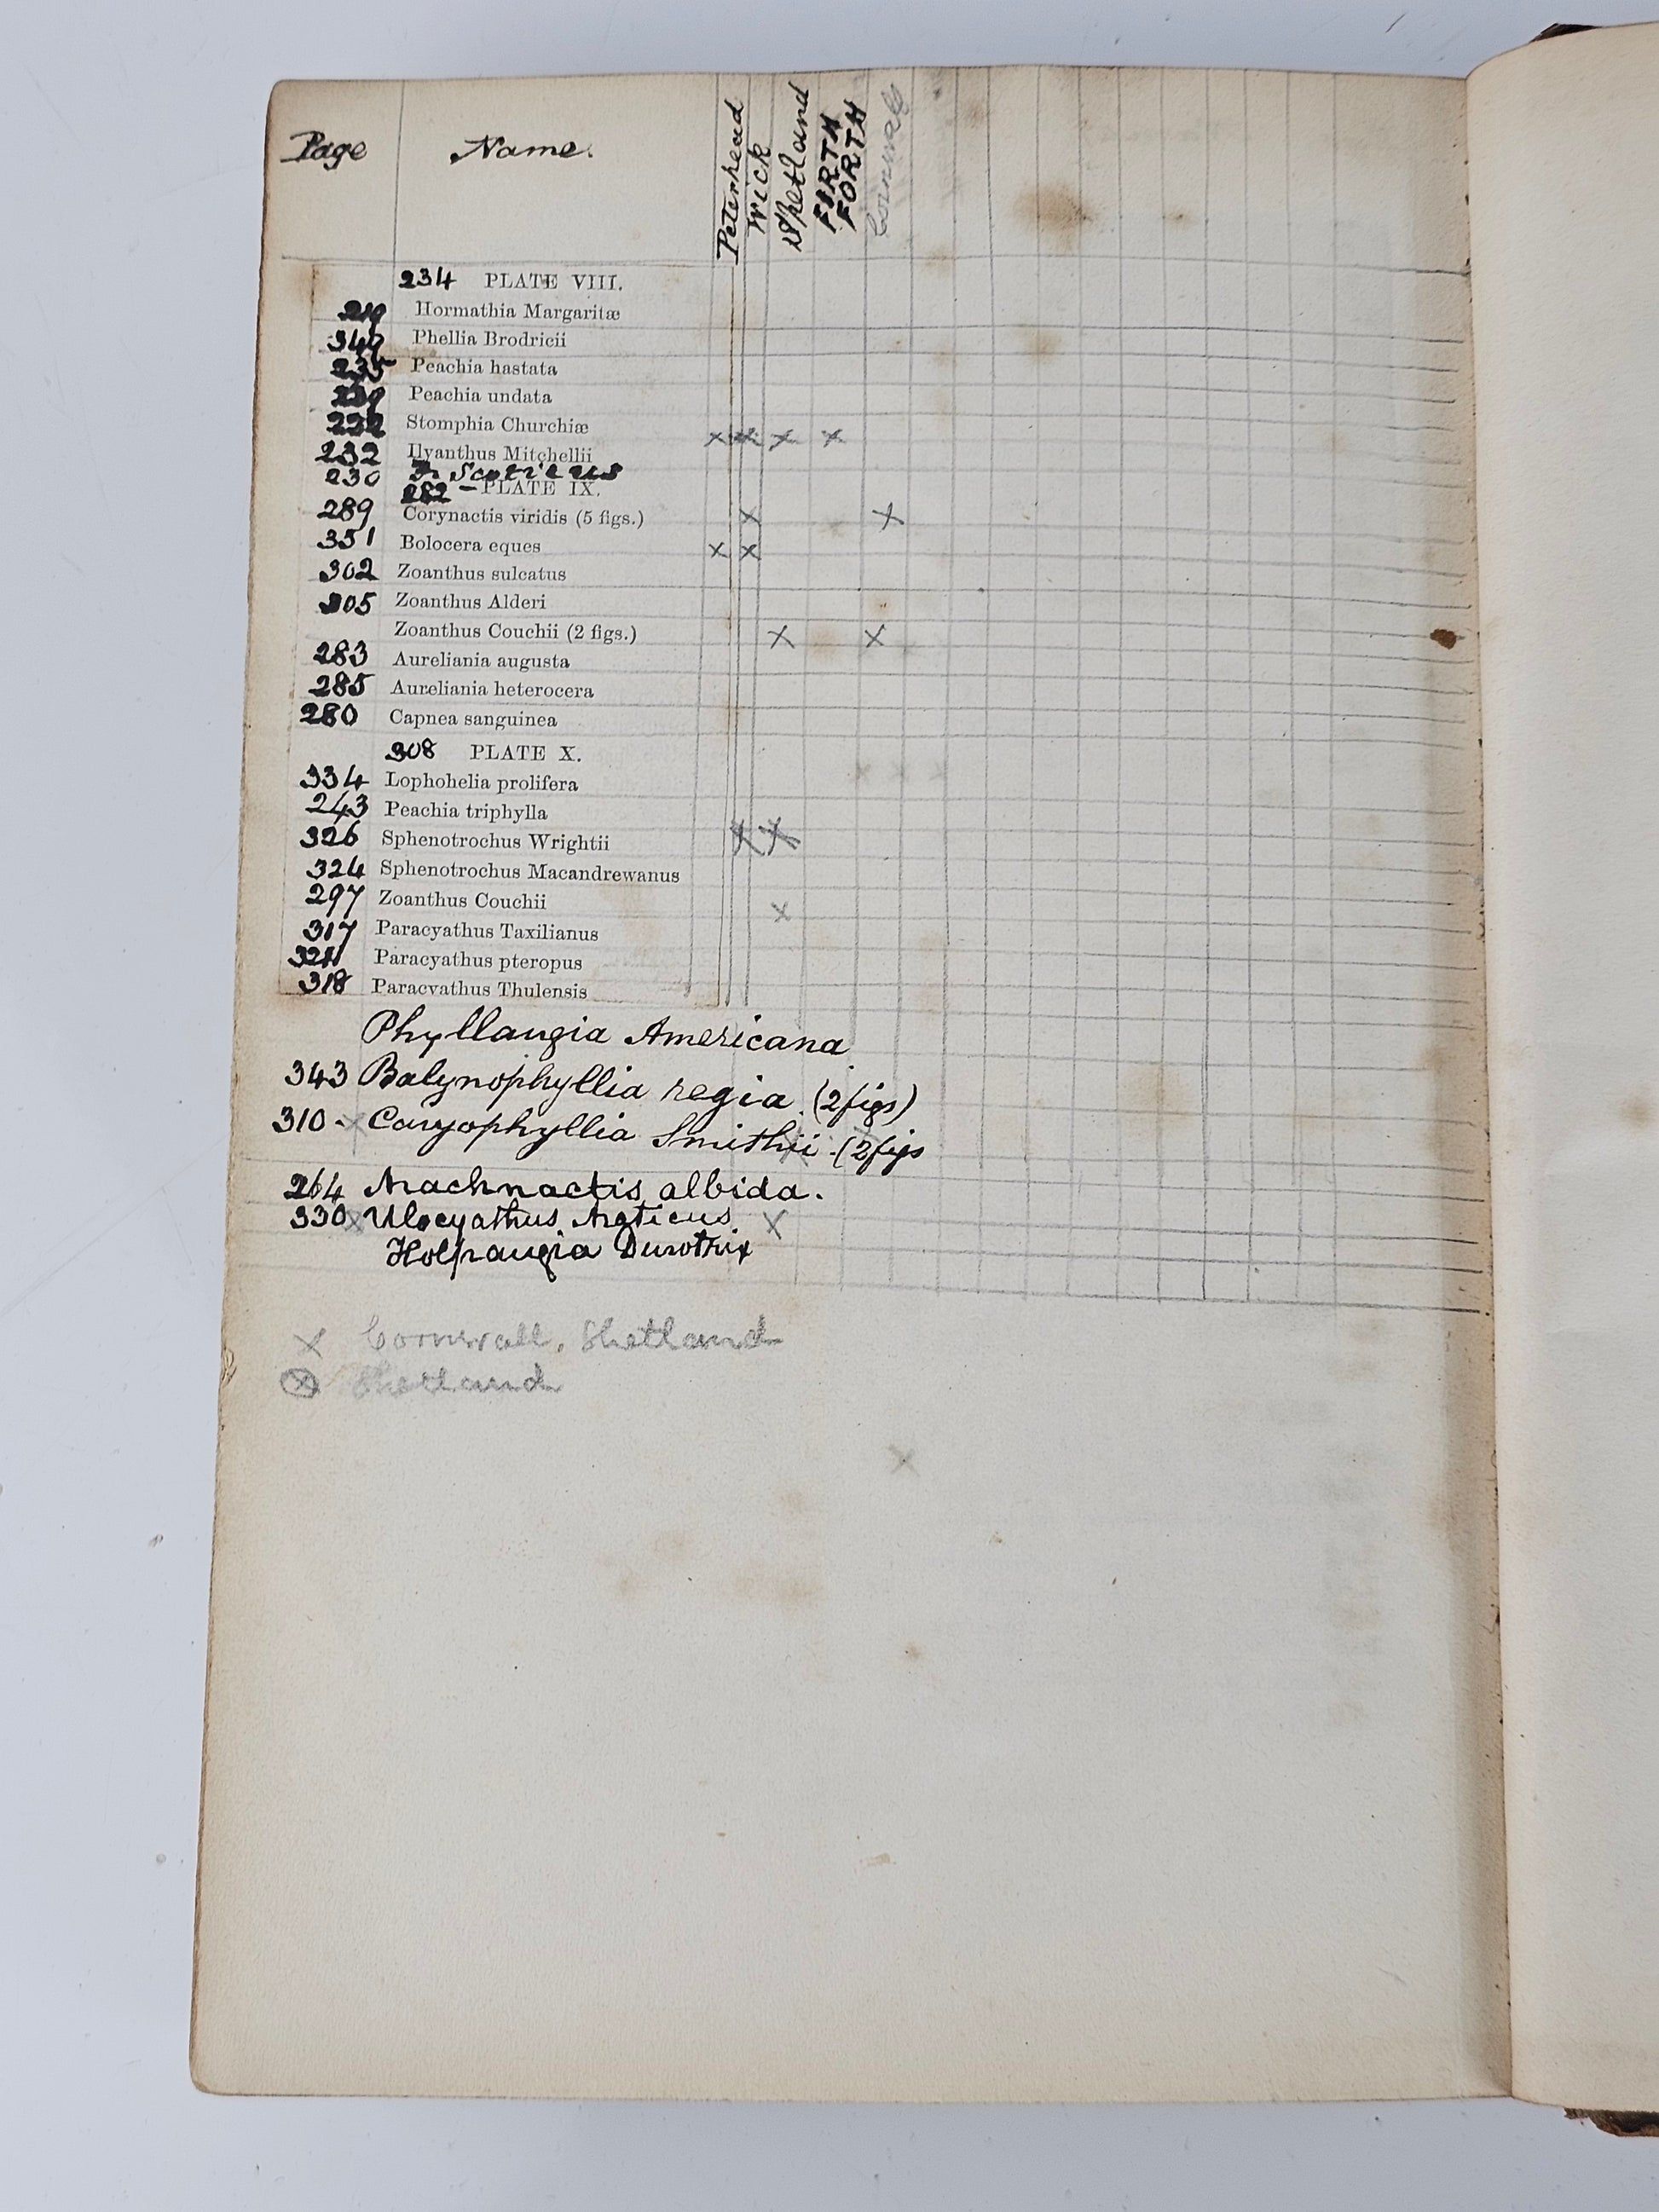 Page Name. Peterhead Wick Shetland FIRTH FORTH Cornwall
234 PLATE VIII.
219 Hormathia Margaritæ
349 Phellia Brodricii
235 Peachia hastata
Peachia undata
222 Stomphia Churchiæ x x x x
232 Ilyanthus Mitchellii
230 I. Scoticus
282 - PLATE IX.
289 Corynactis viridis (5 figs.) x x
351 Bolocera eques x x
302 Zoanthus sulcatus
305 Zoanthus Alderi
Zoanthus Couchii (2 figs.) x x
283 Aureliania augusta
285 Aureliania heterocera
280 Capnea sanguinea
308 PLATE X.
334 Lophohelia prolifera x x x
243 Peachia triphylla
326 Sphenotrochus Wrightii x x
324 Sphenotrochus Macandrewanus
297 Zoanthus Couchii x
317 Paracyathus Taxilianus
321 Paracyathus pteropus
318 Paracyathus Thulensis
Phyllangia Americana
343 Balynophyllia regia (2 figs)
310 - x Caryophyllia Smithii (2 figs
264 Arachnactis albida.
330 x Ulocyathus Arcticus x
Holpangia Durotrix
x Cornwall, Shetland
x Shetland
x